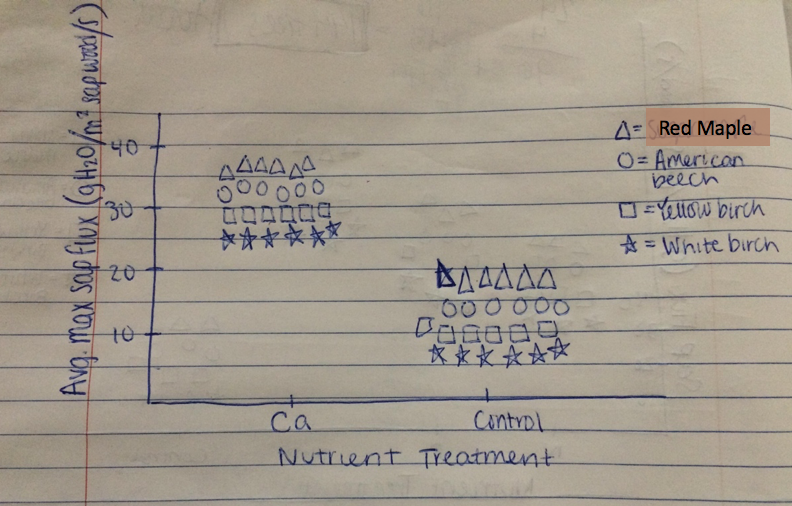 Avg. max sap flux (gH2O/m² sapwood/s)
40
30
20
10
Ca
Control
Nutrient Treatment
△= Red Maple
○= American
beech
□=Yellow birch
☆= White birch